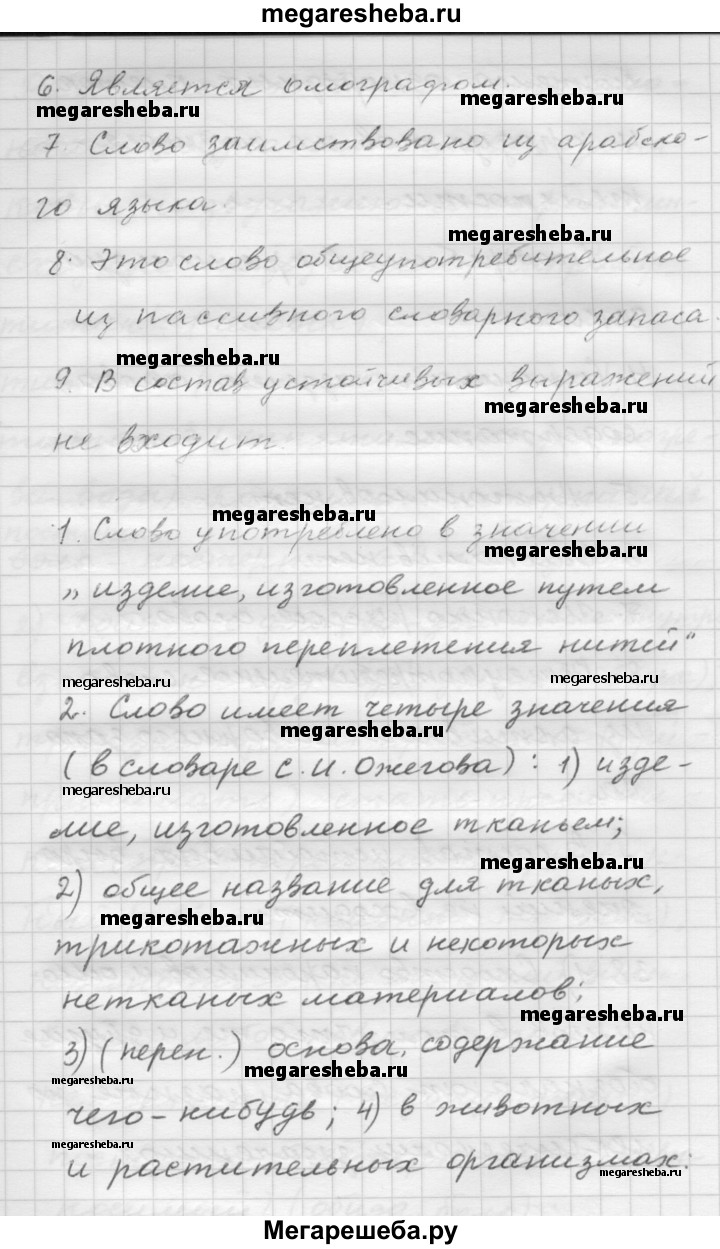 megaresheba.ru
6. Является омографом.
megaresheba.ru
megaresheba.ru
7. Слово заимствовано из арабско-
го языка.
megaresheba.ru
8. Это слово общеупотребительное
из пассивного словарного запаса.
megaresheba.ru
9. В состав устойчивых выражений
megaresheba.ru
не входит.
megaresheba.ru
1. Слово употреблено в значении
megaresheba.ru
„изделие, изготовленное путем
плотного переплетения нитей"
megaresheba.ru
megaresheba.ru
2. Слово имеет четыре значения
megaresheba.ru
(в словаре С. И. Ожегова): 1) изде-
megaresheba.ru
лие, изготовленное тканьем;
megaresheba.ru
2) общее название для тканых,
megaresheba.ru
трикотажных и некоторых
нетканых материалов;
megaresheba.ru
3) (перен.) основа, содержание
megaresheba.ru
megaresheba.ru
чего-нибудь; 4) в животных
megaresheba.ru
и растительных организмах:
megaresheba.ru
Мегарешеба.ру